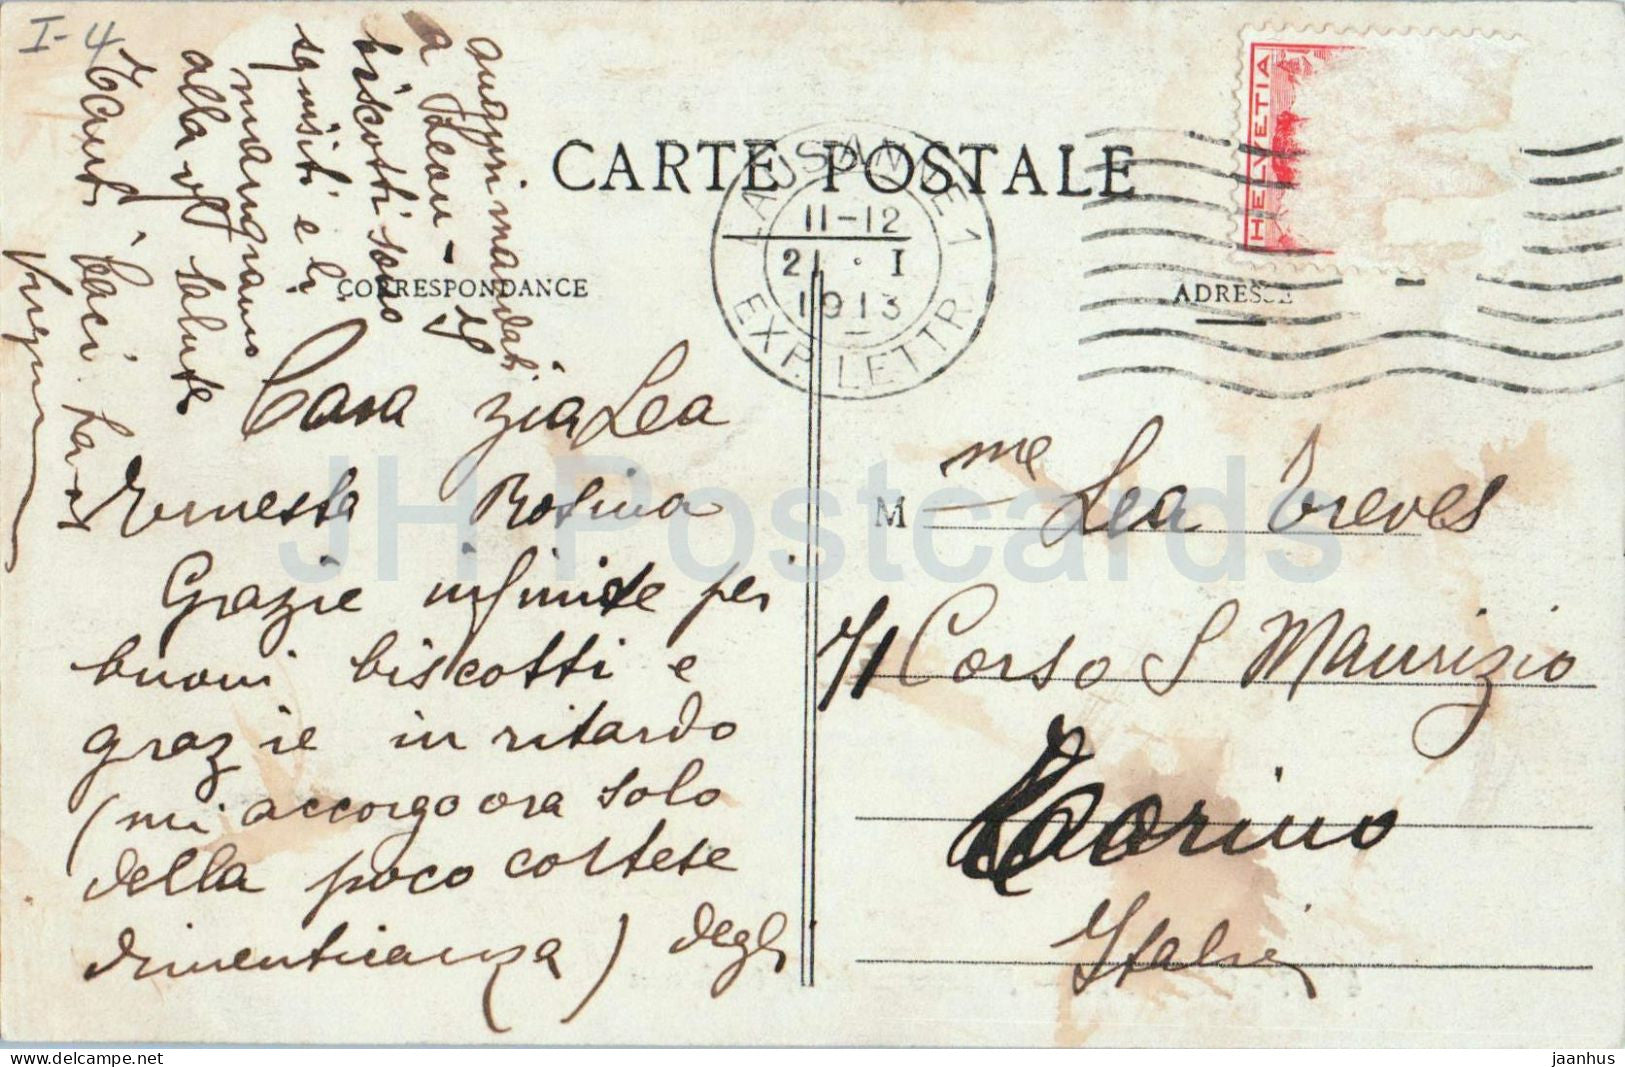 I-4
CARTE POSTALE
CORRESPONDANCE
ADRESSE
HELVETIA
LAUSANNE 1
11-12
21 · I
1913
EXP. LETTR.
Cara zia Lea
Ernesta Rosina
Grazie infinite pei
buoni biscotti e
grazie in ritardo
(mi accorgo ora solo
della poco cortese
dimenticanza) degli
auguri mandati
a Leon - I
biscotti sono
squisiti e li
mangiamo
alla vs salute
Tanti baci
M me Lea Treves
71 Corso S Maurizio
Torino
Italie
JH Postcards
delcampe.net
jaanhus